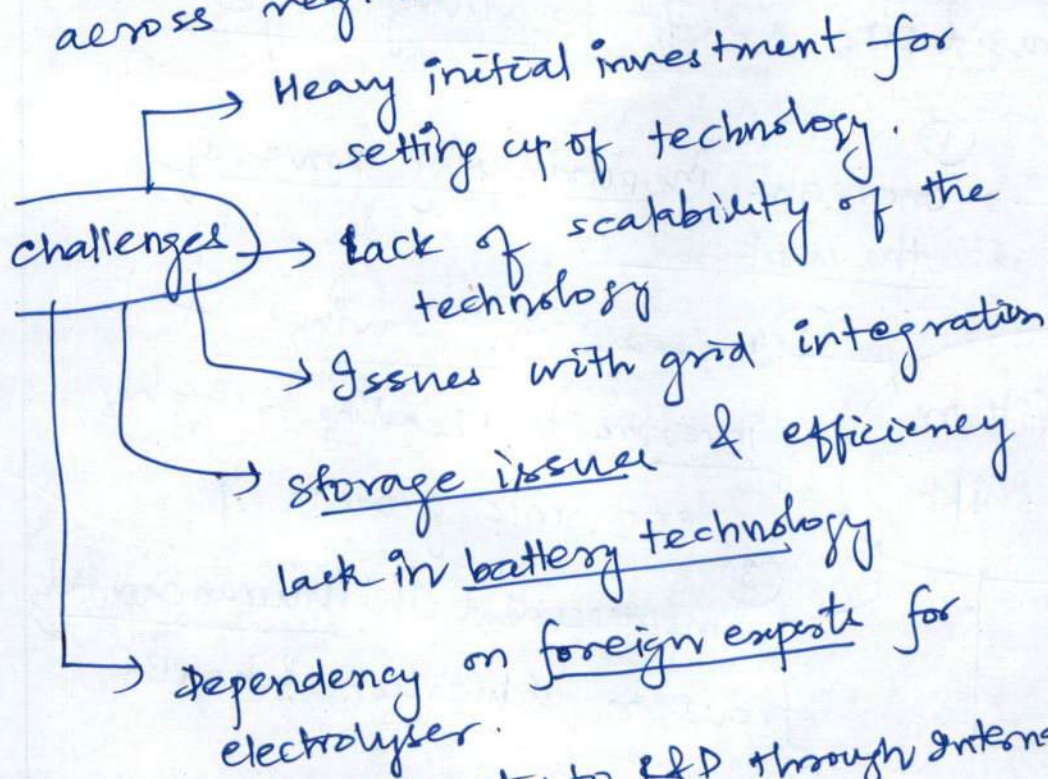 across
Heavy initial investment for
setting up of technology.
challenges
Lack of scalability of the
technology
Issues with grid integration
storage issues & efficiency
lack in battery technology
Dependency on foreign exports for
electrolyser.
to R&D through